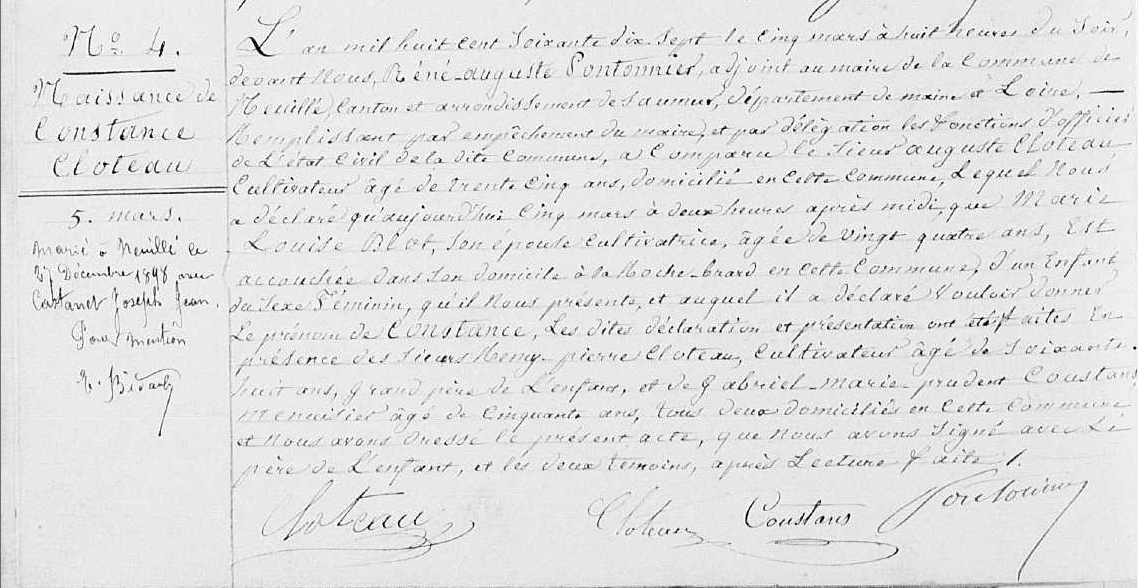 No 4.
Naissance de
Constance
Cloteau
5. mars.
Marié à Neuillé le
Décembre 1898 avec
Castanet Joseph Jean.
Pour mention
L'an mil huit cent Soixante dix-Sept le cinq mars à huit heures du Soir,
devant Nous, Réné-auguste Pontonnier, adjoint au maire de la Commune de
Neuillé, Canton et arrondissement de Saumur, département de maine et Loire, —
Remplissant par empêchement du maire, et par délégation les fonctions d'officier
de L'état Civil de la dite Commune, a Comparu le Sieur auguste Cloteau
Cultivateur âgé de trente cinq ans, domicilié en cette Commune, Lequel Nous
a déclaré qu'aujourd'hui cinq mars à deux heures après midi, que Marie
Louise Blot, Son épouse cultivatrice, âgée de vingt quatre ans, Est
accouchée dans Son domicile à la Roche-brard en cette Commune, d'un Enfant
du Sexe Féminin, qu'il Nous présente, et auquel il a déclaré Vouloir donner
Le prénom de Constance, Les dites déclaration et présentation ont été faites En
présence des Sieurs Remy-pierre Cloteau, Cultivateur âgé de Soixante-
huit ans, grand père de L'enfant, et de Gabriel-Marie-prudent Coustans
Menuisier âgé de Cinquante ans, tous deux domiciliés en Cette Commune
et Nous avons dressé le présent acte, que Nous avons Signé avec Le
père de L'enfant, et les deux témoins, après Lecture faite /.
Cloteau Cloteau Coustans Pontonnier